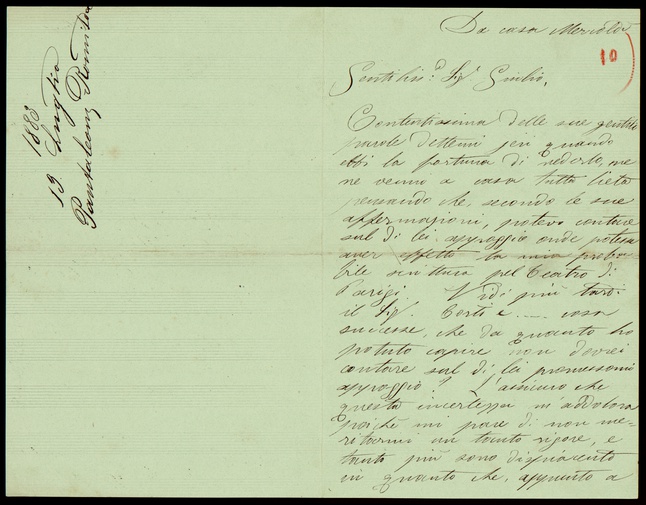 1883
19 Luglio
Pantaleoni Romilda
Da casa Mercoldì
10
Gentiliss.o Sigr Giulio,
Contentissima delle sue gentili
parole dettemi jeri quando
ebbi la fortuna di vederlo, me
ne venni a casa tutta lieta
pensando che, secondo le sue
affermazioni, potevo contare
sul di lei appoggio onde potesse
aver effetto la mia proba-
bile scrittura pel Teatro di
Parigi. Vidi più tardi
il Sigr. Corti e .... cosa
successe, che da quanto ho
potuto capire non dovrei
contare sul di lei promessomi
appoggio? L'assicuro che
questa incertezza m'addolora
poichè mi pare di non me-
ritarmi un tanto rigore, e
tanto più sono dispiacente
in quanto che, appunto a